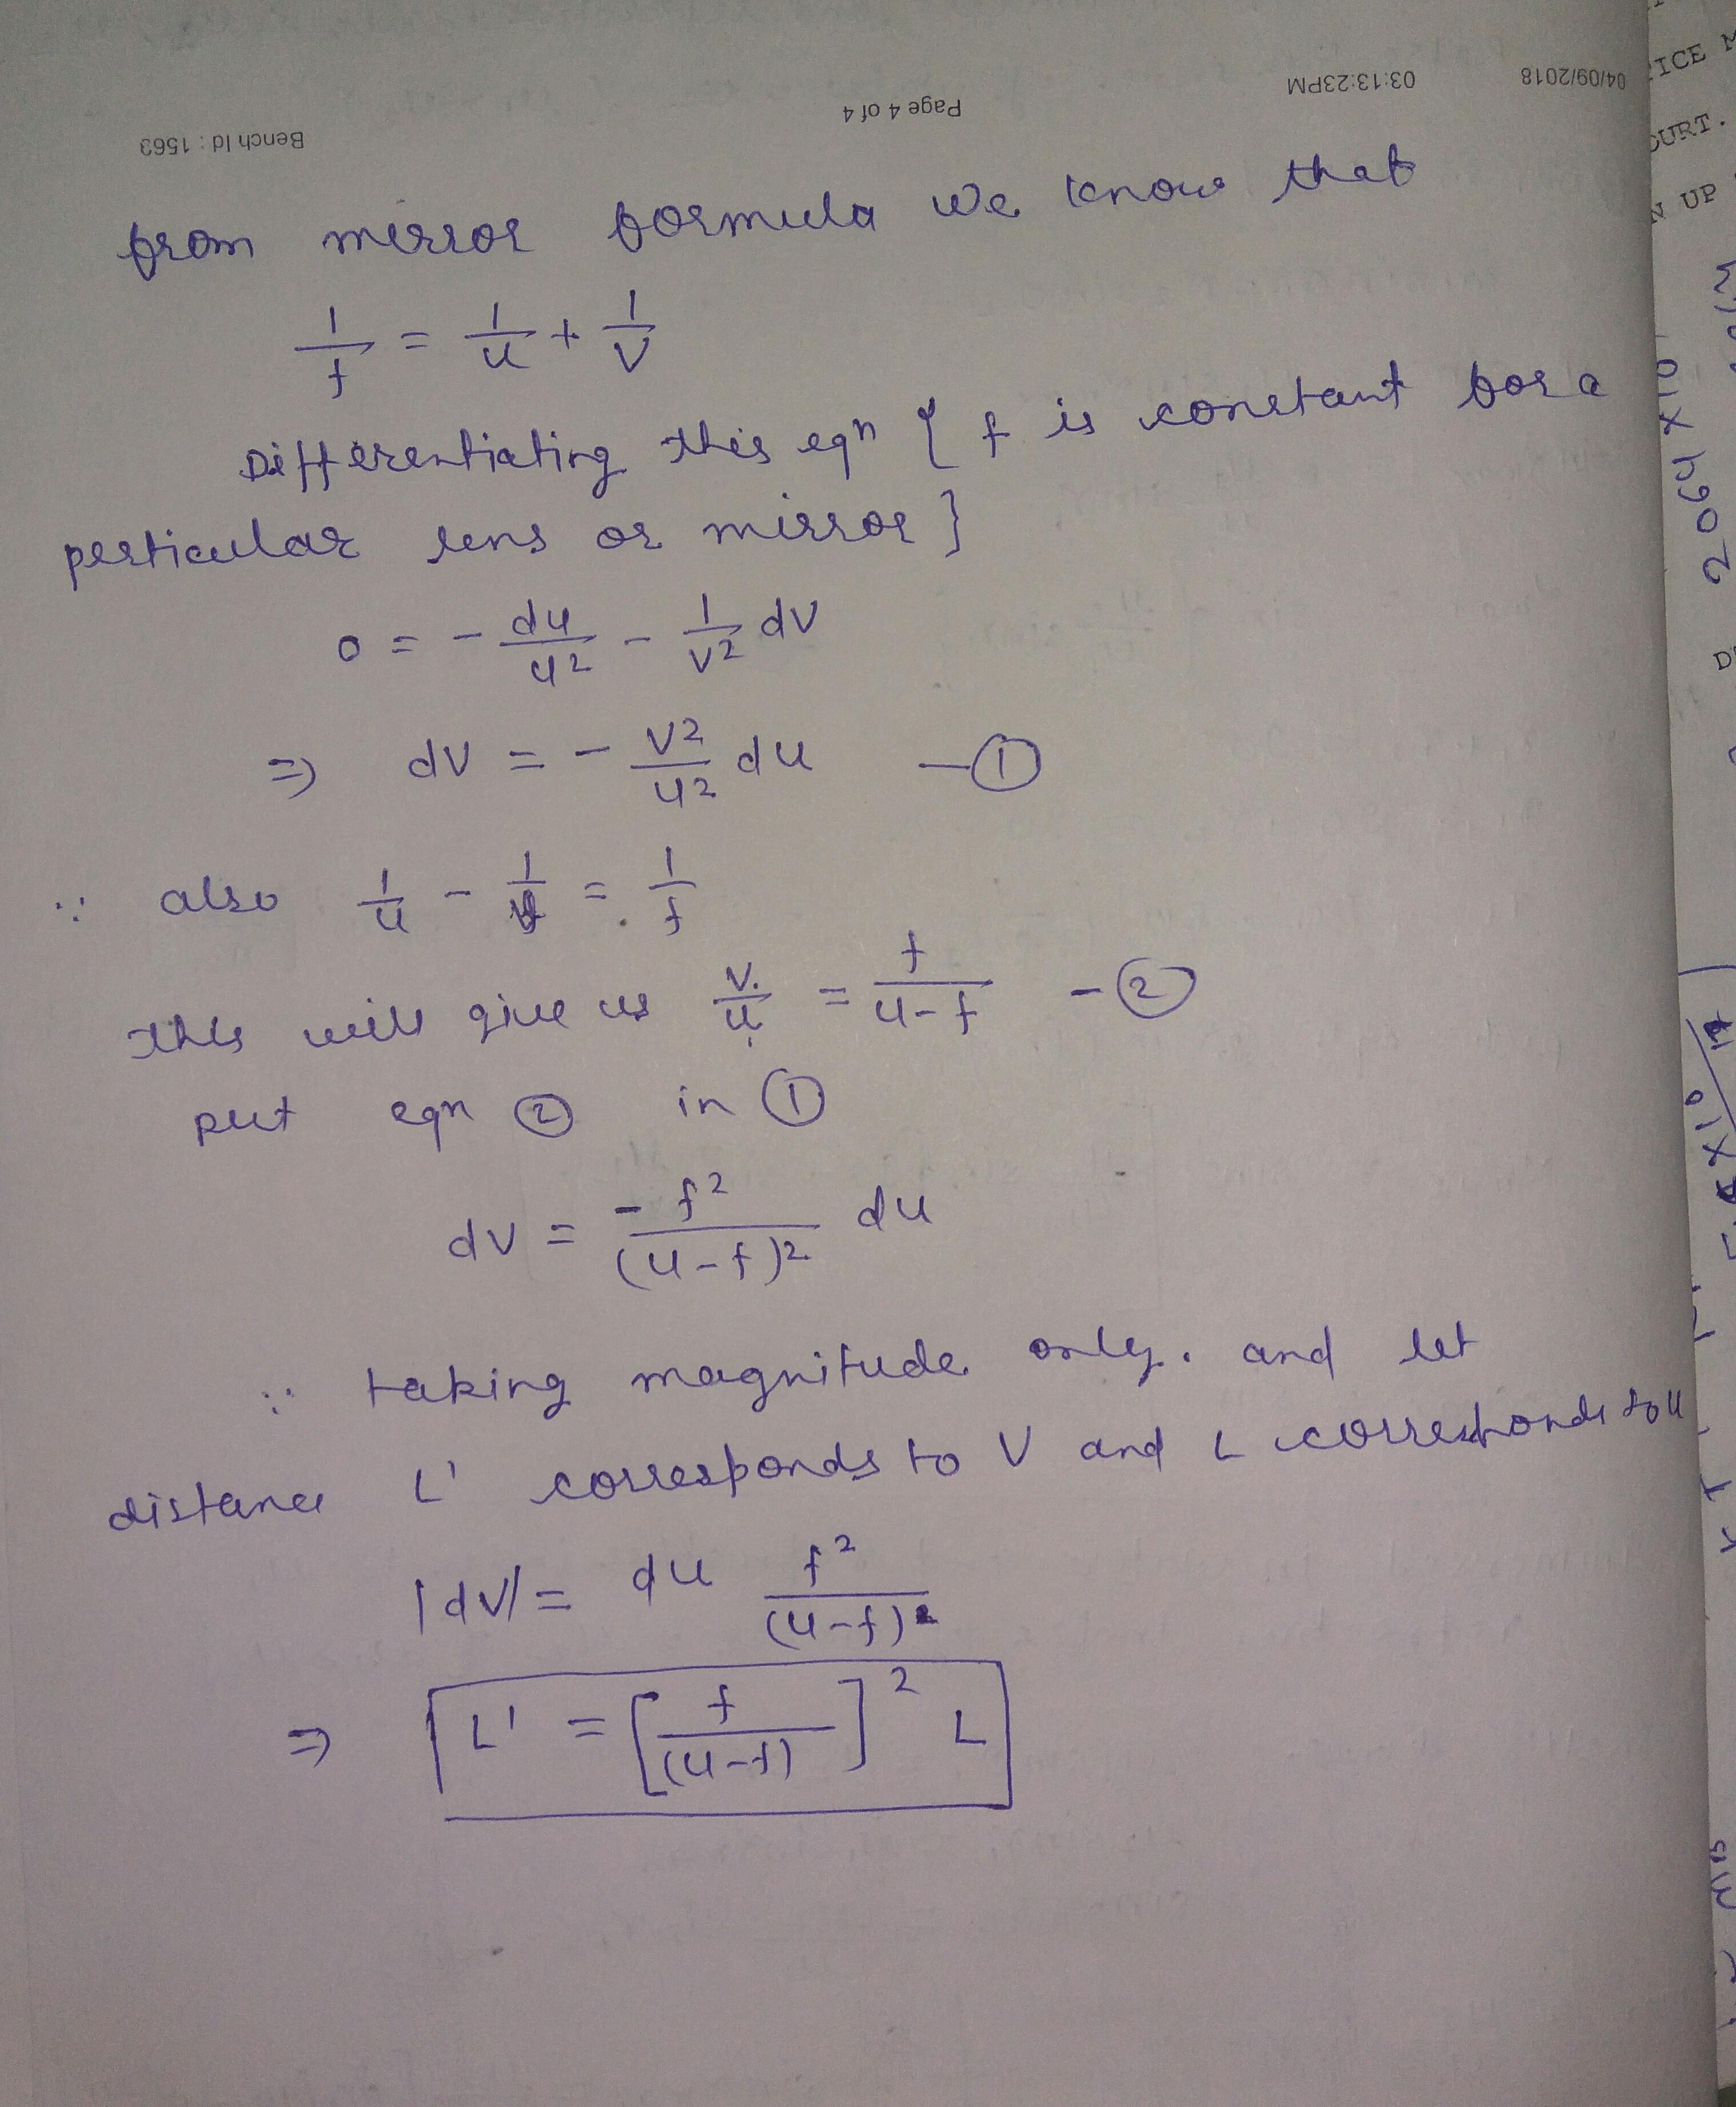 Bench Id : 1563
Page 4 of 4
03:13:23PM
04/09/2018
from mirror formula we know that
1/f = 1/u + 1/v
Differentiating this eqn { f is constant for a
perticular lens or mirror }
0 = - du/u² - 1/v² dv
=> dv = - v²/u² du - ①
∵ also 1/u - 1/v = 1/f
this will give us v/u = f/u-f - ②
put eqn ② in ①
dv = -f²/(u-f)² du
∵ taking magnitude only. and let
distance L' corresponds to v and L corresponds to u
|dv| = du f²/(u-f)²
=> L' = [f/(u-f)]² L
ICE
OURT.
N UP
2.064 x 10